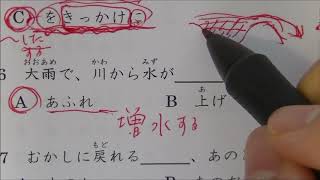 Ⓒを きっかけに
〜した
する
6 大雨で、川から水が____
おおあめ かわ みず
Ⓐ あふれ B 上げ
あ
増水する
7 むかしに戻れる____、あの
もど